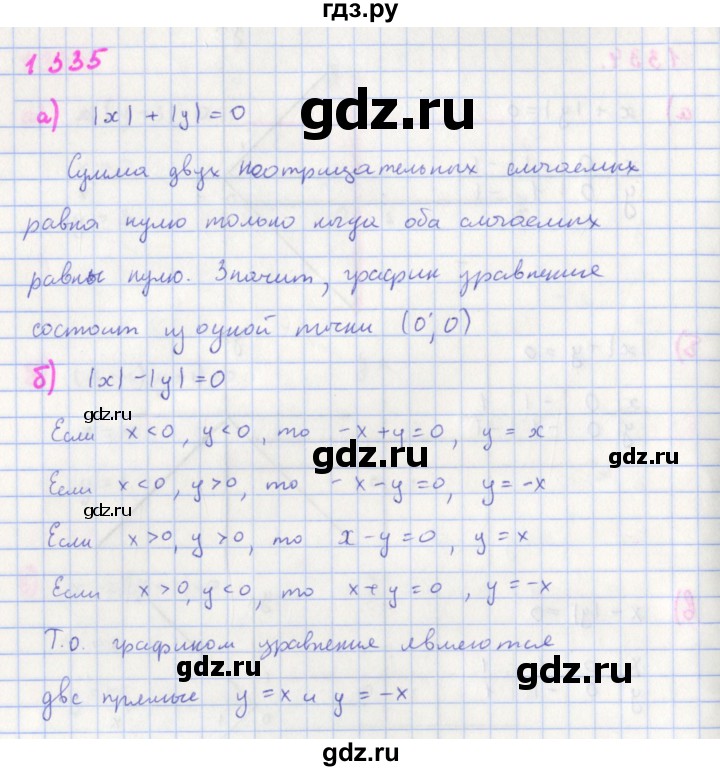 гдз.ру
1335
а) |x| + |y| = 0
gdz.ru
Сумма двух неотрицательных слагаемых
равна нулю только когда оба слагаемых
равны нулю. Значит, график уравнения
состоит из одной точки (0; 0)
б) |x| - |y| = 0
gdz.ru
Если x < 0, y < 0, то -x + y = 0, y = x
gdz.ru
gdz.ru
Если x < 0, y > 0, то -x - y = 0, y = -x
gdz.ru
Если x > 0, y > 0, то x - y = 0, y = x
Если x > 0, y < 0, то x + y = 0, y = -x
Т.о. графиком уравнения являются
gdz.ru
gdz.ru
две прямые y = x и y = -x
gdz.ru